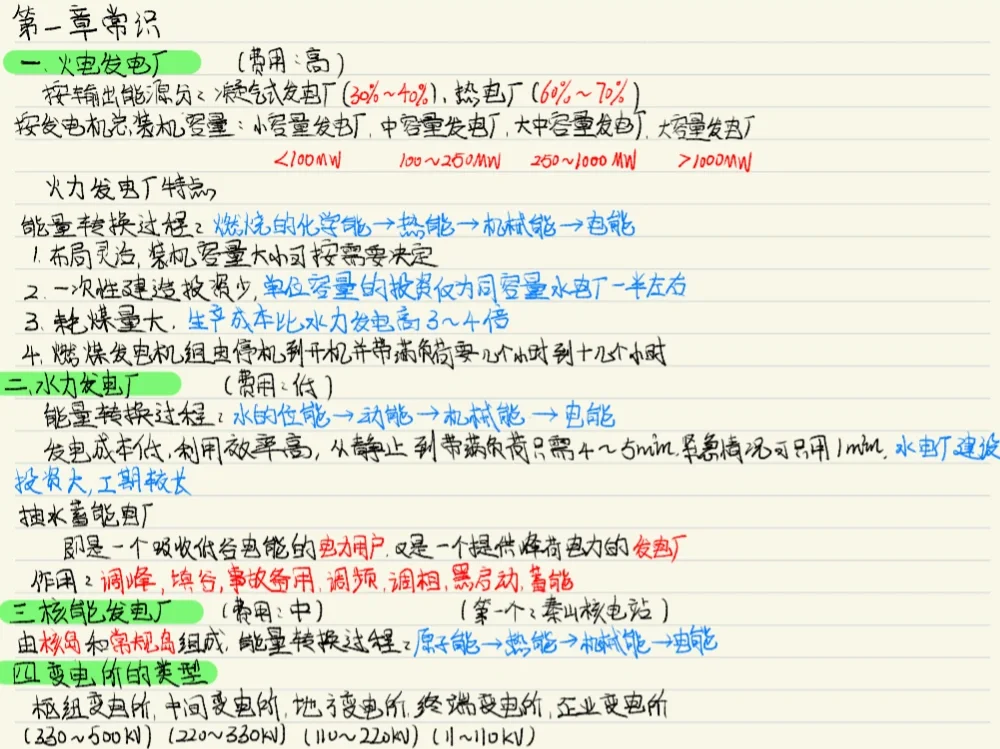 第一章常识
一.火电发电厂 (费用:高)
按输出能源分:凝气式发电厂(30%~40%),热电厂(60%~70%)
按发电机总装机容量:小容量发电厂,中容量发电厂,大中容量发电厂,大容量发电厂
<100MW 100~250MW 250~1000MW >1000MW
火力发电厂特点
能量转换过程:燃烧的化学能→热能→机械能→电能
1.布局灵活,装机容量大小可按需要决定
2.一次性建造投资少,单位容量的投资仅为同容量水电厂一半左右
3.耗煤量大,生产成本比水力发电高3~4倍
4.燃煤发电机组由停机到开机并带满负荷要几个小时到十几个小时
二.水力发电厂 (费用:低)
能量转换过程:水的位能→动能→机械能→电能
发电成本低,利用效率高,从静止到带满负荷只需4~5min.紧急情况可只用1min,水电厂建设
投资大,工期较长
抽水蓄能电厂
即是一个吸收低谷电能的电力用户,又是一个提供峰荷电力的发电厂
作用:调峰,填谷,事故备用,调频,调相,黑启动,蓄能
三核能发电厂 (费用:中) (第一个:秦山核电站)
由核岛和常规岛组成,能量转换过程:原子能→热能→机械能→电能
四.变电所的类型
枢纽变电所,中间变电所,地方变电所,终端变电所,企业变电所
(330~500kV) (220~330kV) (110~220kV) (11~110kV)